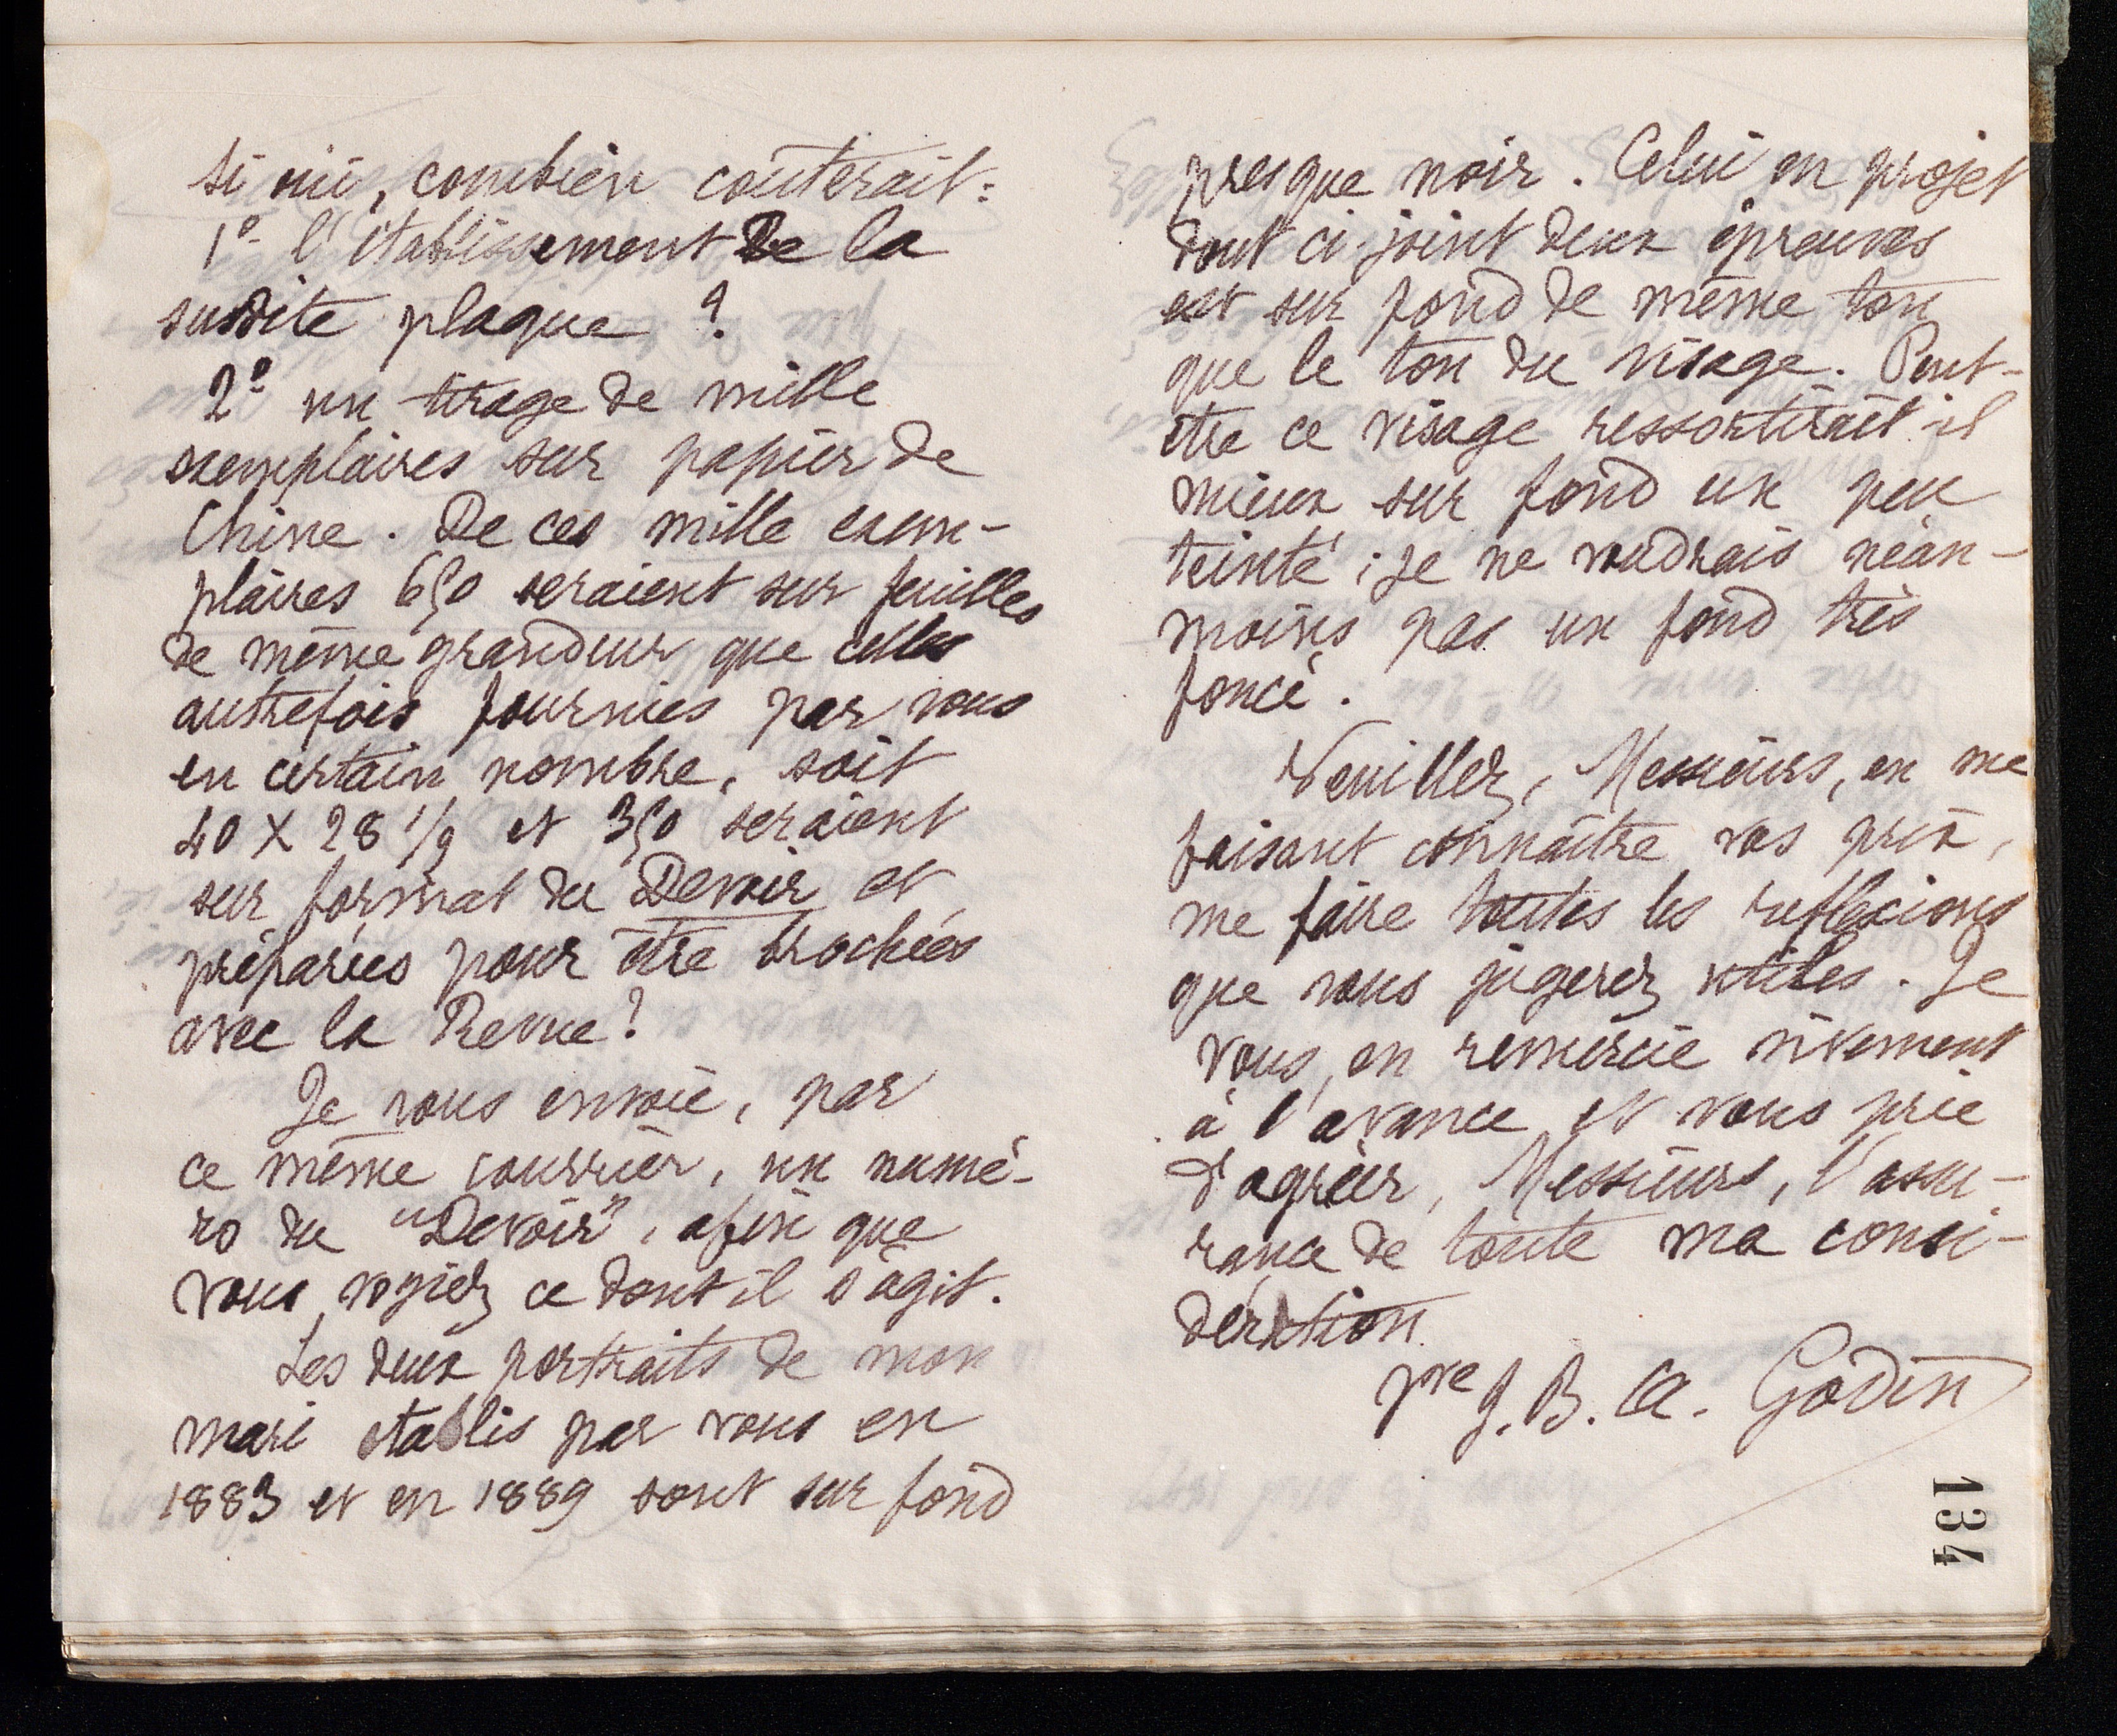 si oui, combien coûterait :
1º- l'établissement de la
susdite plaque ?
2º un tirage de mille
exemplaires sur papier de
Chine. De ces mille exem-
plaires 650 seraient sur feuilles
de même grandeur que celles
autrefois fournies par vous
en certain nombre, soit
40 X 28 1/2 et 350 seraient
sur format du Devoir et
préparées pour être brochées
avec la Revue ?
Je vous envoie, par
ce même courrier, un numé-
ro du "Devoir", afin que
vous voyiez ce dont il s'agit.
Les deux portraits de mon
mari établis par vous en
1883 et en 1889 sont sur fond
presque noir. Celui en projet
dont ci-joint deux épreuves
est sur fond de même ton
que le ton du visage. Peut-
être ce visage ressortirait-il
mieux sur fond un peu
teinté ; je ne voudrais néan-
moins pas un fond très
foncé.
Veuillez, Messieurs, en me
faisant connaître vos prix,
me faire toutes les réflexions
que vous jugerez utiles. Je
vous en remercie vivement
à l'avance et vous prie
d'agréer, Messieurs, l'assu-
rance de toute ma consi-
dération.
Vve J. B. A. Godin
134